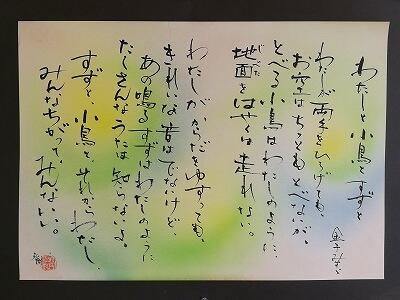 わたしと小鳥とすずと
金子みすゞ
わたしが両手をひろげても、
お空はちっともとべないが、
とべる小鳥はわたしのように、
地面をはやくは走れない。
わたしがからだをゆすっても、
きれいな音はでないけど、
あの鳴るすずはわたしのように
たくさんなうたは知らないよ。
すずと、小鳥と、それからわたし、
みんなちがって、みんないい。